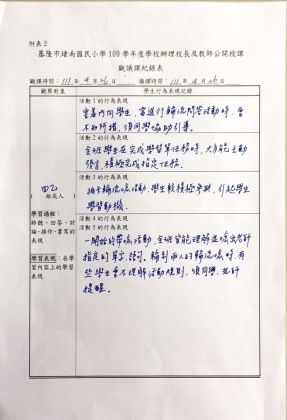 附表2
基隆市堵南國民小學 109 學年度學校辦理校長及教師公開授課
觀議課紀錄表
觀課時間：111 年 4 月 26 日 議課時間：111 年 4 月 26 日
觀察對象
學生行為表現記錄
四乙
(組或人)
學習過程：
聆聽、回答、討
論、操作、書寫的
表現
學習表現：在學
習內容上的學習
表現
活動1的行為表現
當善內向學生，當進行輪流問答活動時，會
不知所措，須同學協助引導。
活動2的行為表現
全班學生在完成學習單任務時，大多能主動
發言，積極完成指定任務。
活動3的行為表現
抽卡輪流唸活動，學生較積極參與，引起學生
學習動機。
活動4的行為表現
活動5的行為表現
一開始的帶唸活動，全班皆能理解並唸出老師
指定的單字、語句，輪到兩人的輪流唸時，有
些學生會不理解活動規則，須同學、老師
提醒。